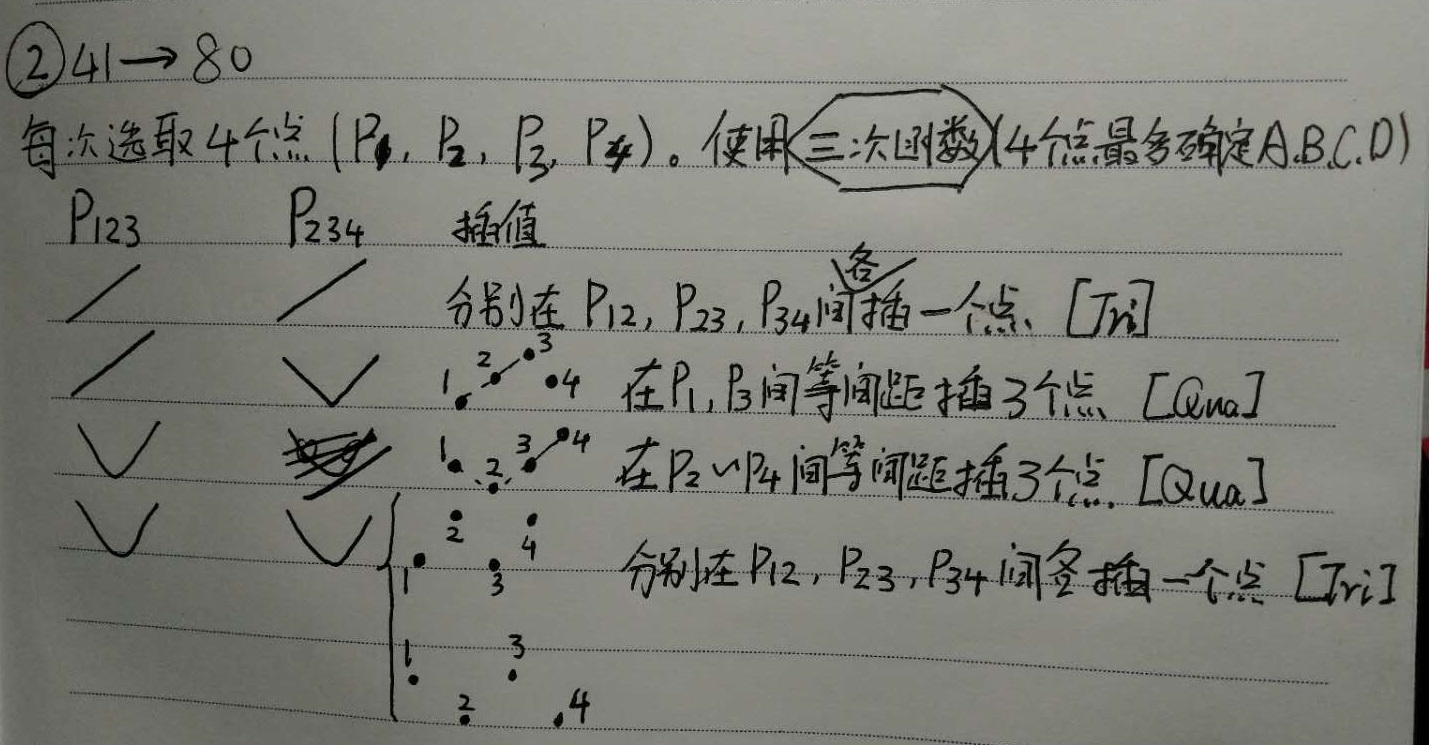 ② 41→80
每次选取4个点(P1, P2, P3, P4)。使用三次函数(4个点最多确定A.B.C.D)
P123 P234 插值
分别在P12, P23, P34间各插一个点、[Tri]
1 2 3 4 在P1, P3间等间距插3个点 [Qua]
1 2 3 4 在P2~P4间等间距插3个点. [Qua]
1 2 3 4 分别在P12, P23, P34间各插一个点 [Tri]
1 2 3 4